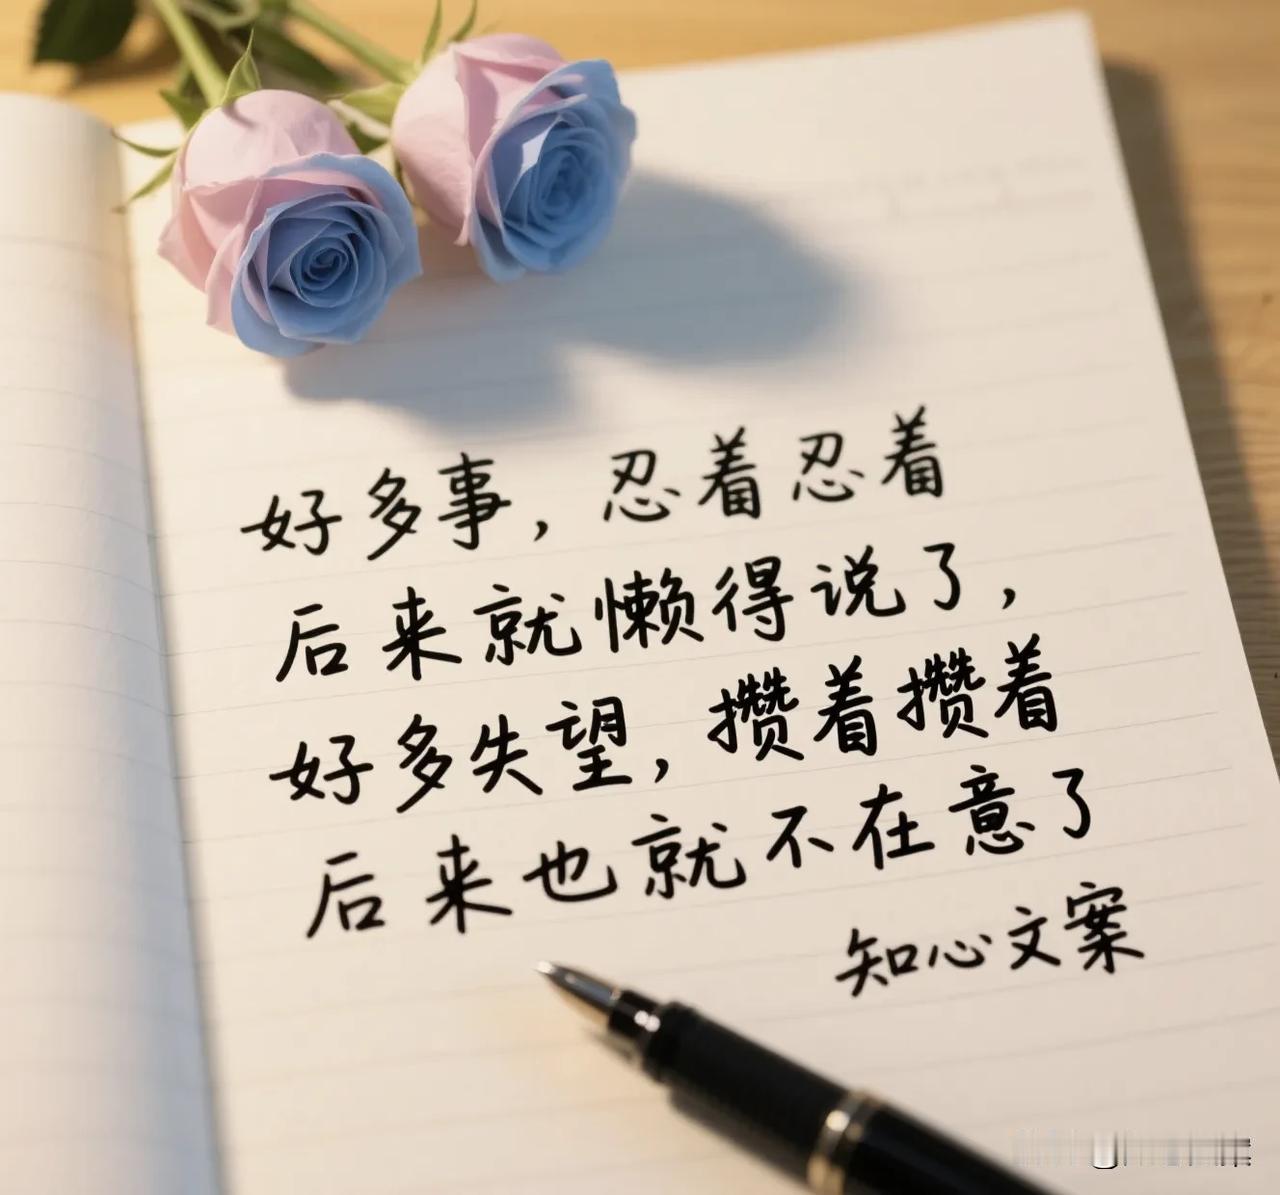 好多事，忍着忍着
后来就懒得说了，
好多失望，攒着攒着
后来也就不在意了
知心文案